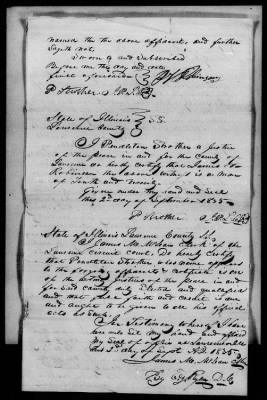 named the the above affiant, and further
Sayeth not.
Sworn to and Subscribed
Before me this day and date
first aforesaid
P Strother J.P. L.C.
State of Illinois } SS.
Lawrence County
I Pendleton Strother a Justice
of the peace in and for the County of
Lawrence do hereby certify that James
Robinson the above is a man
of truth and veracity.
Given under my hand and Seal
this 2nd day of September 1835
P Strother
State of Illinois Lawrence County Sct
I James M. McLean Clerk of the
Lawrence circuit court, Do hereby Certify
that Pendleton Strother whose name appears
to the forgoing affidavit & certificate is one
of the acting Justices of the peace in and
for Said County, duly Elected and qualified
and that full faith and credit is due
and ought to be given to all his official
acts as such.
In Testimony whereof I have
hereunto Set my hand and affixed
my Seal of office at Lawrenceville
this 2d day of Sept A.D. 1835.
James M. McLean Clk
By D.C.